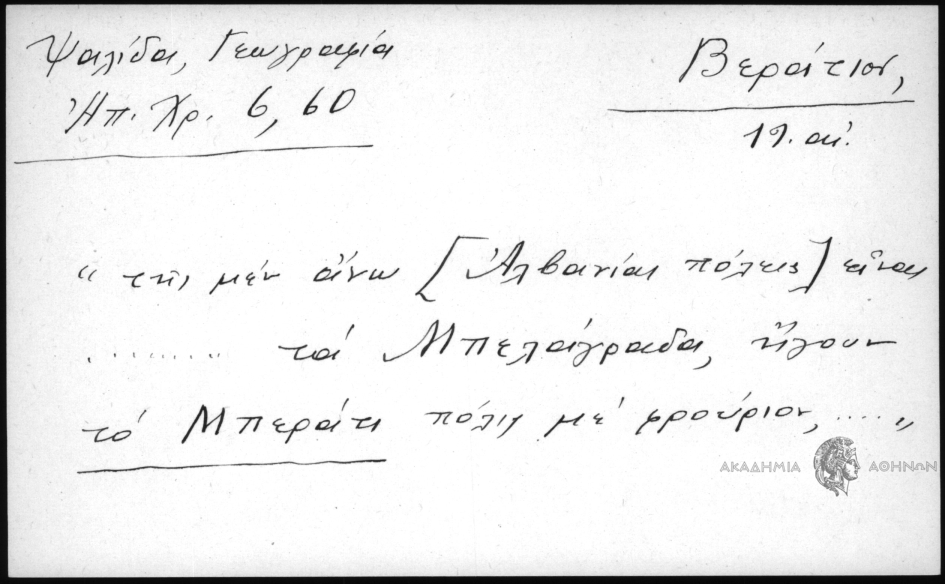 Ψαλίδα, Γεωγραφία
Ἠπ. Χρ. 6, 60
Βεράτιον,
19. αἰ.
“ τῆς μέν ἄνω [Ἀλβανίας πόλεις] εἶναι
......... τά Μπελάγραδα, ἤγουν
τό Μπεράτι πόλις μέ φρούριον, ..... „
ΑΚΑΔΗΜΙΑ ΑΘΗΝΩΝ